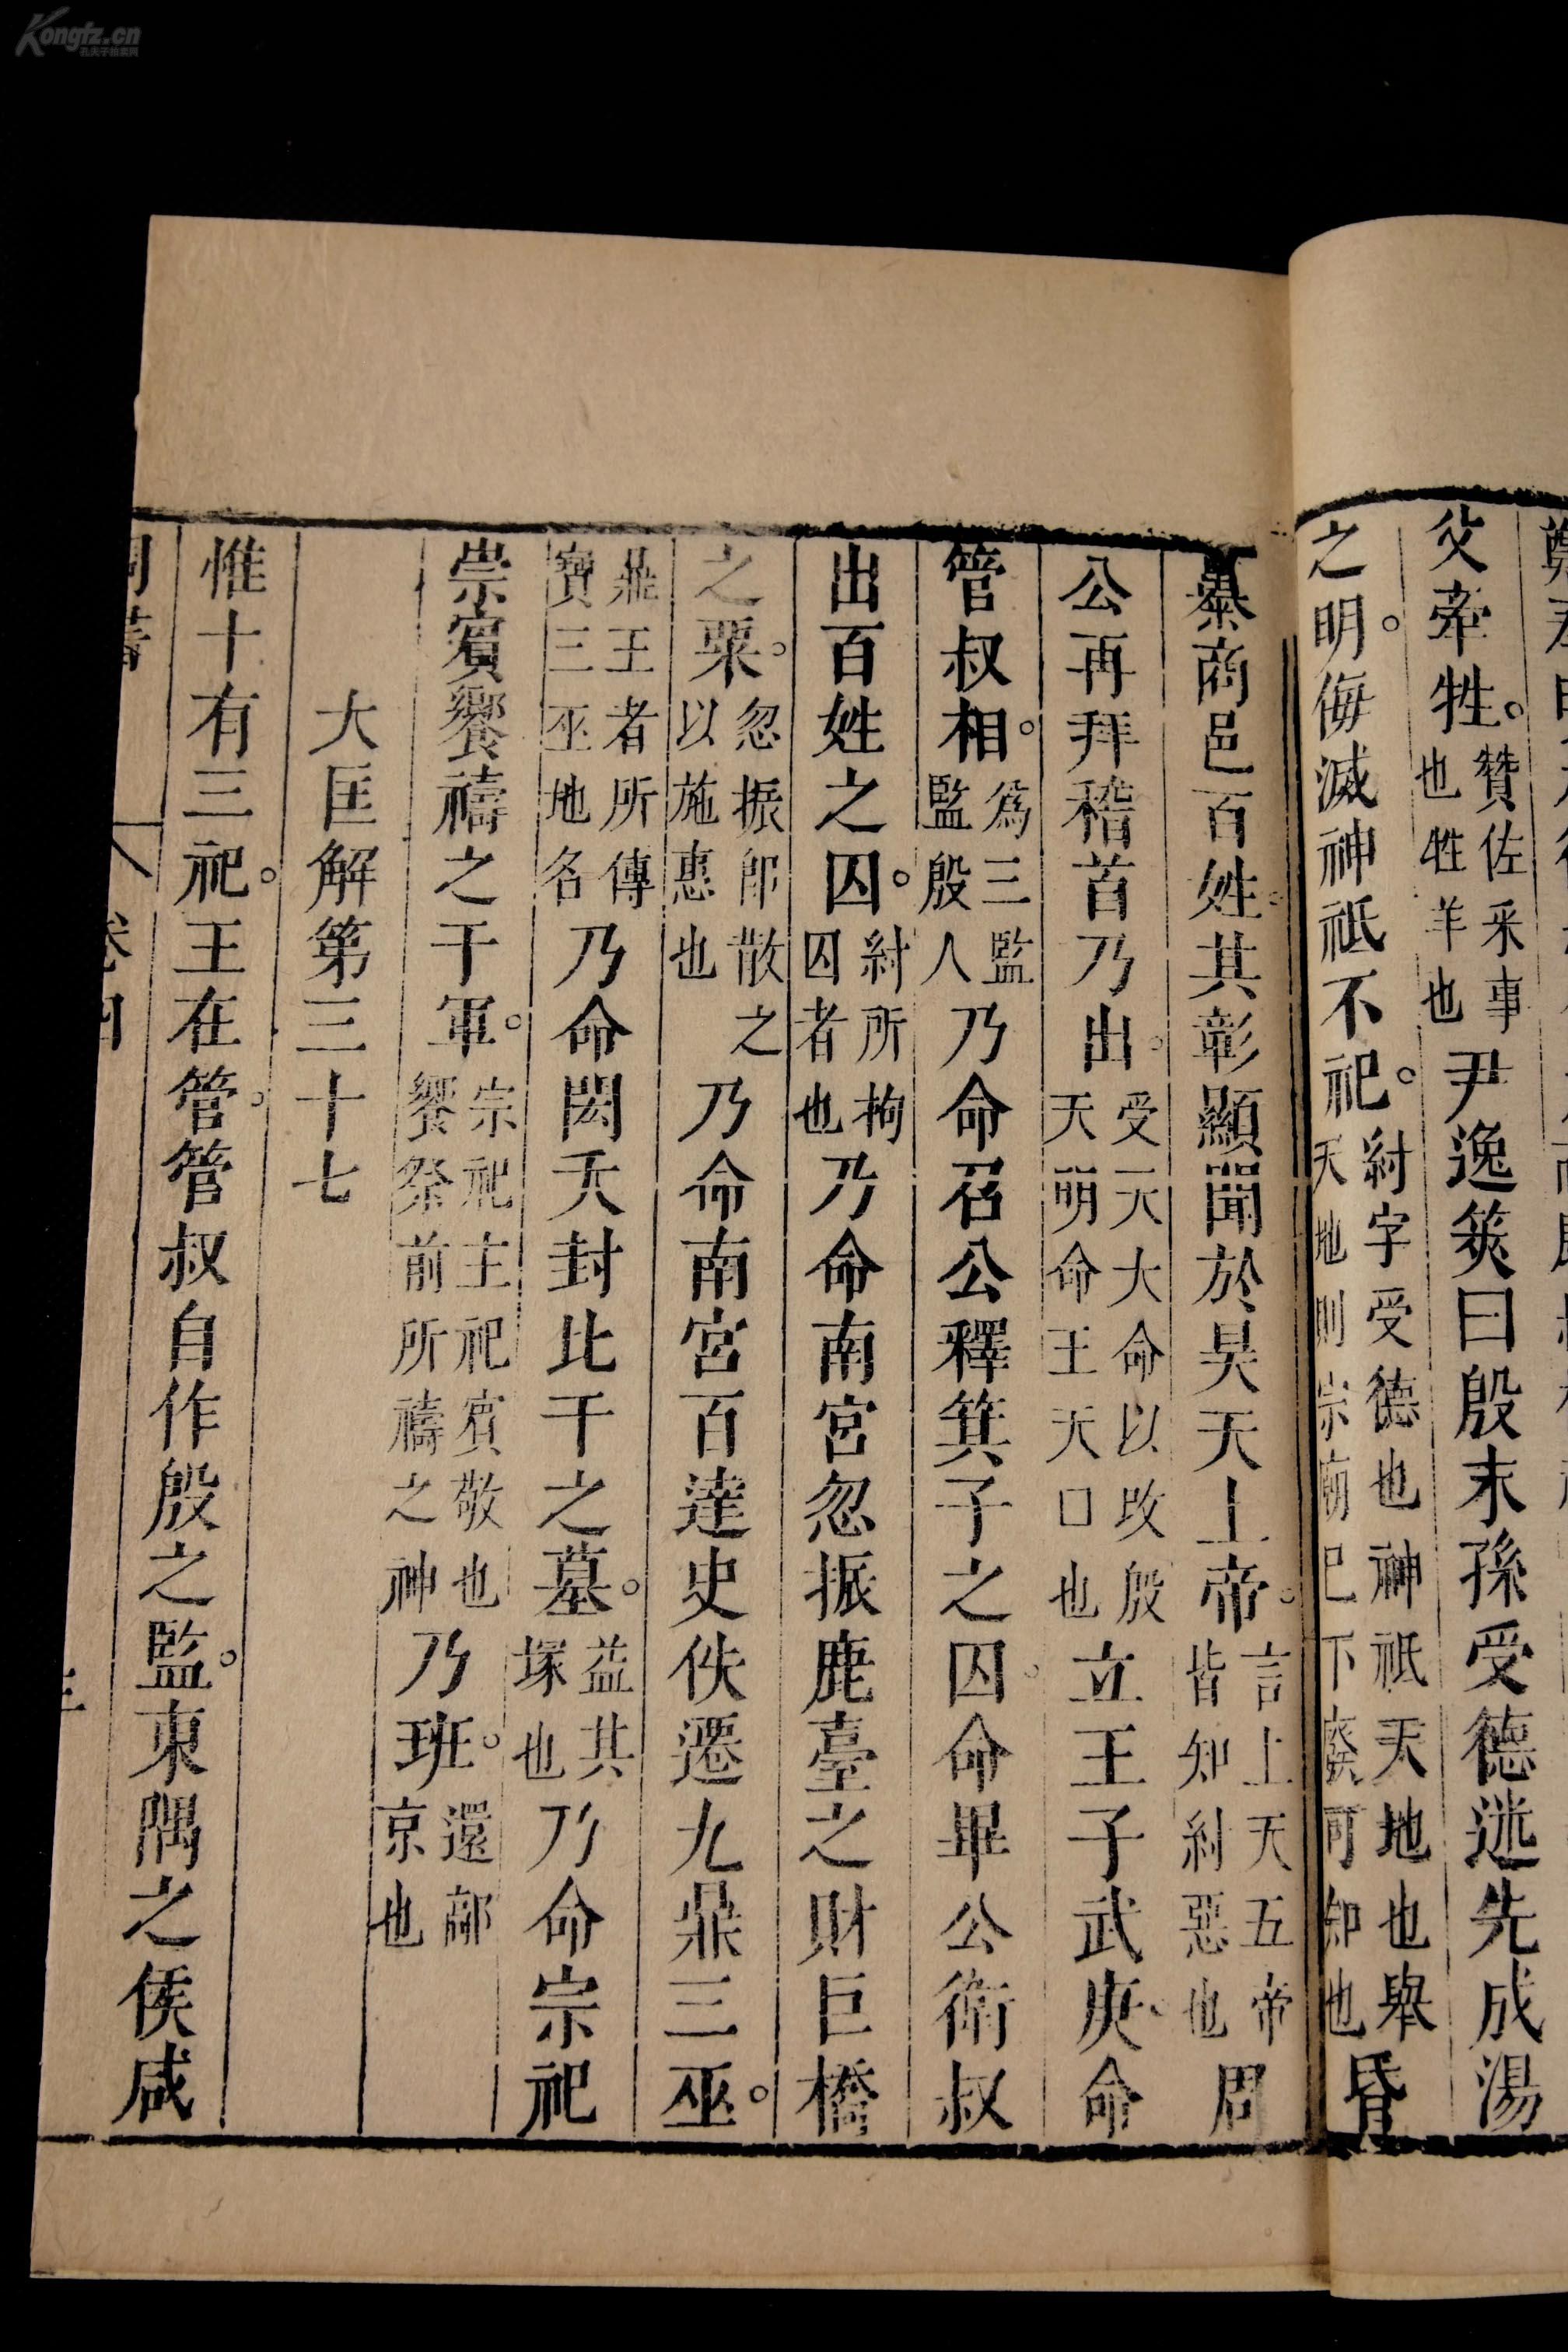 父牽牲。贊佐采事也牲羊也尹逸筴曰殷末孫受德迷先成湯
之明。侮滅神祇不祀。紂字受德也神祇天地也舉天地則宗廟已下廢可知也昏
暴商邑百姓其彰顯聞於昊天上帝。言上天五帝皆知紂惡也周
公再拜稽首乃出。受天大命以改殷天明命王天口也立王子武庚命
管叔相。爲三監監殷人乃命召公釋箕子之囚。命畢公衛叔
出百姓之囚。紂所拘囚者也乃命南宮忽振鹿臺之財巨橋
之粟。忽振卽散之以施惠也乃命南宮百達史佚遷九鼎三巫。
鼎王者所傳寶三巫地名乃命閎夭封比干之墓。益其塚也乃命宗祀
崇賓饗禱之于軍。宗祀主祀賓敬也饗祭前所禱之神乃班。還鄗京也
大匡解第三十七
惟十有三祀。王在管。管叔自作殷之監。東隅之侯咸
Kongfz.cn
孔夫子旧书网